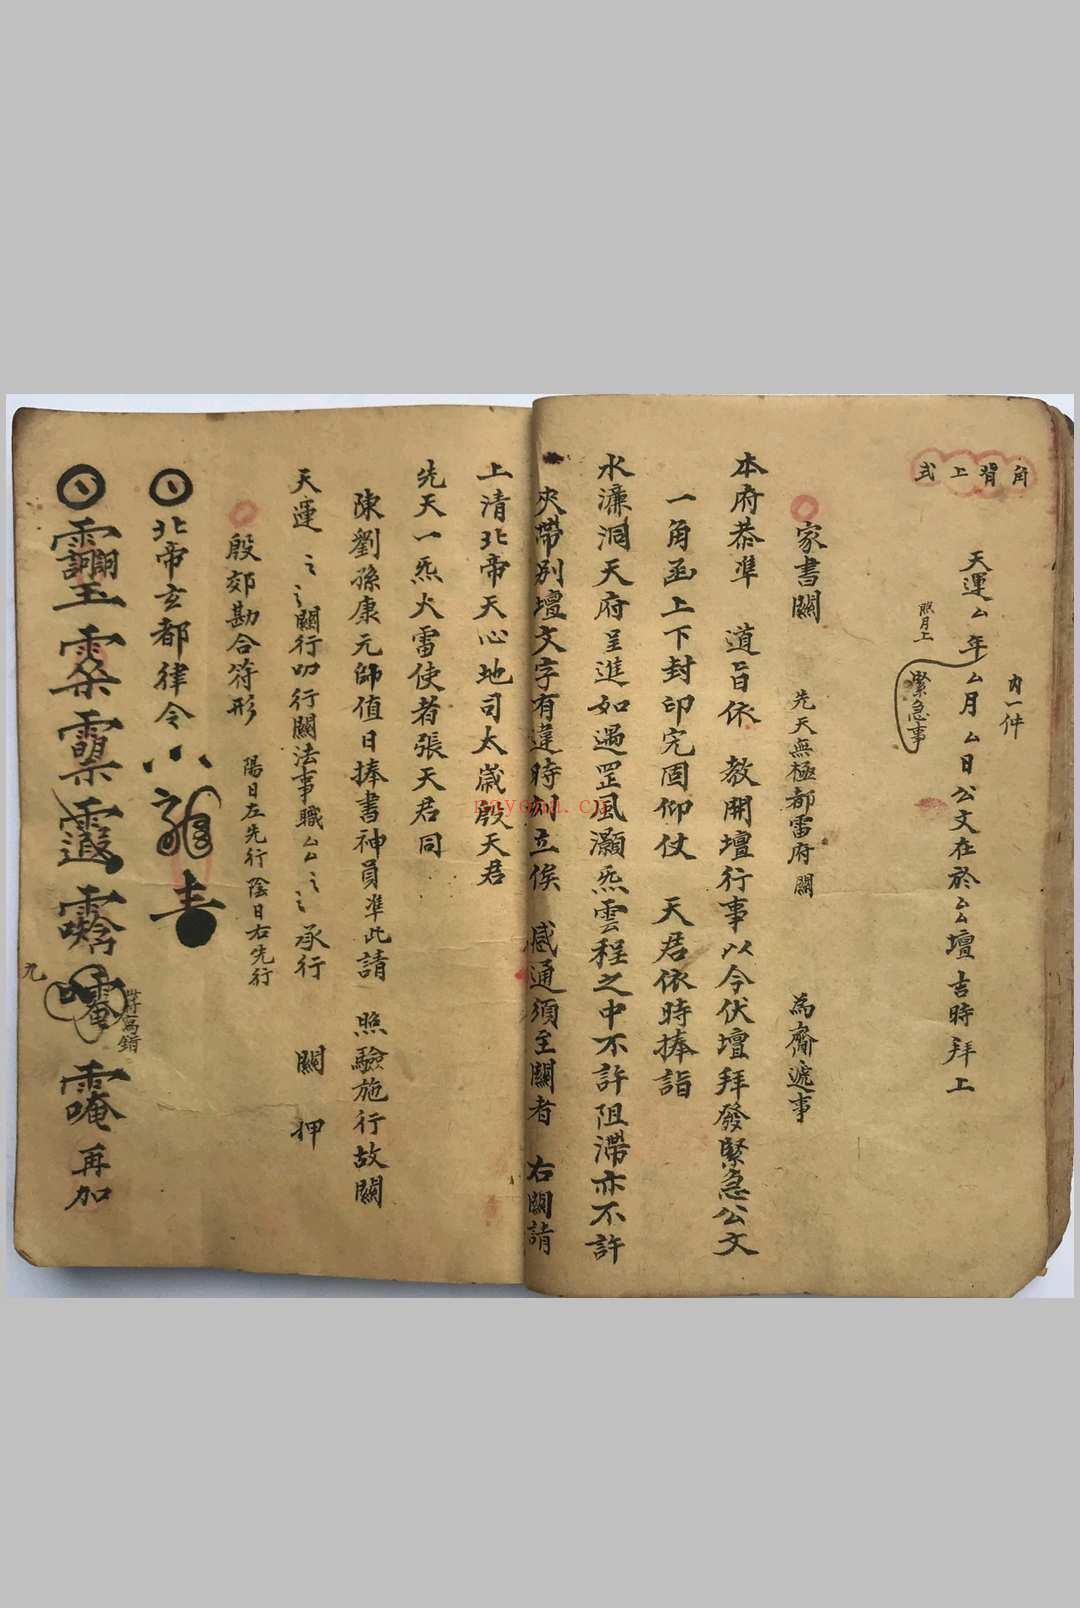 角背上式
內一件
天運厶年厶月厶日公文在於厶壇吉時拜上
照月上
緊急事
家書關 先天無極都雷府關 為齎遞事
本府恭準 道旨依 教開壇行事以今伏壇拜發緊急公文
一角函上下封印完固仰仗 天君依時捧詣
水濂洞天府呈進如遇罡風灝炁雲程之中不許阻滯亦不許
夾帶別壇文字有違時刻立俟 感通須至關者 右關請
上清北帝天心地司太歲殷天君
先天一炁火雷使者張天君同
陳劉孫康元帥值日捧書神員準此請 照驗施行故關
天運 關行叨行關法事職厶厶 承行 關 押
殷郊勘合符形 陽日左先行陰日右先行
北帝玄都律令
再加
九
nayona.cn